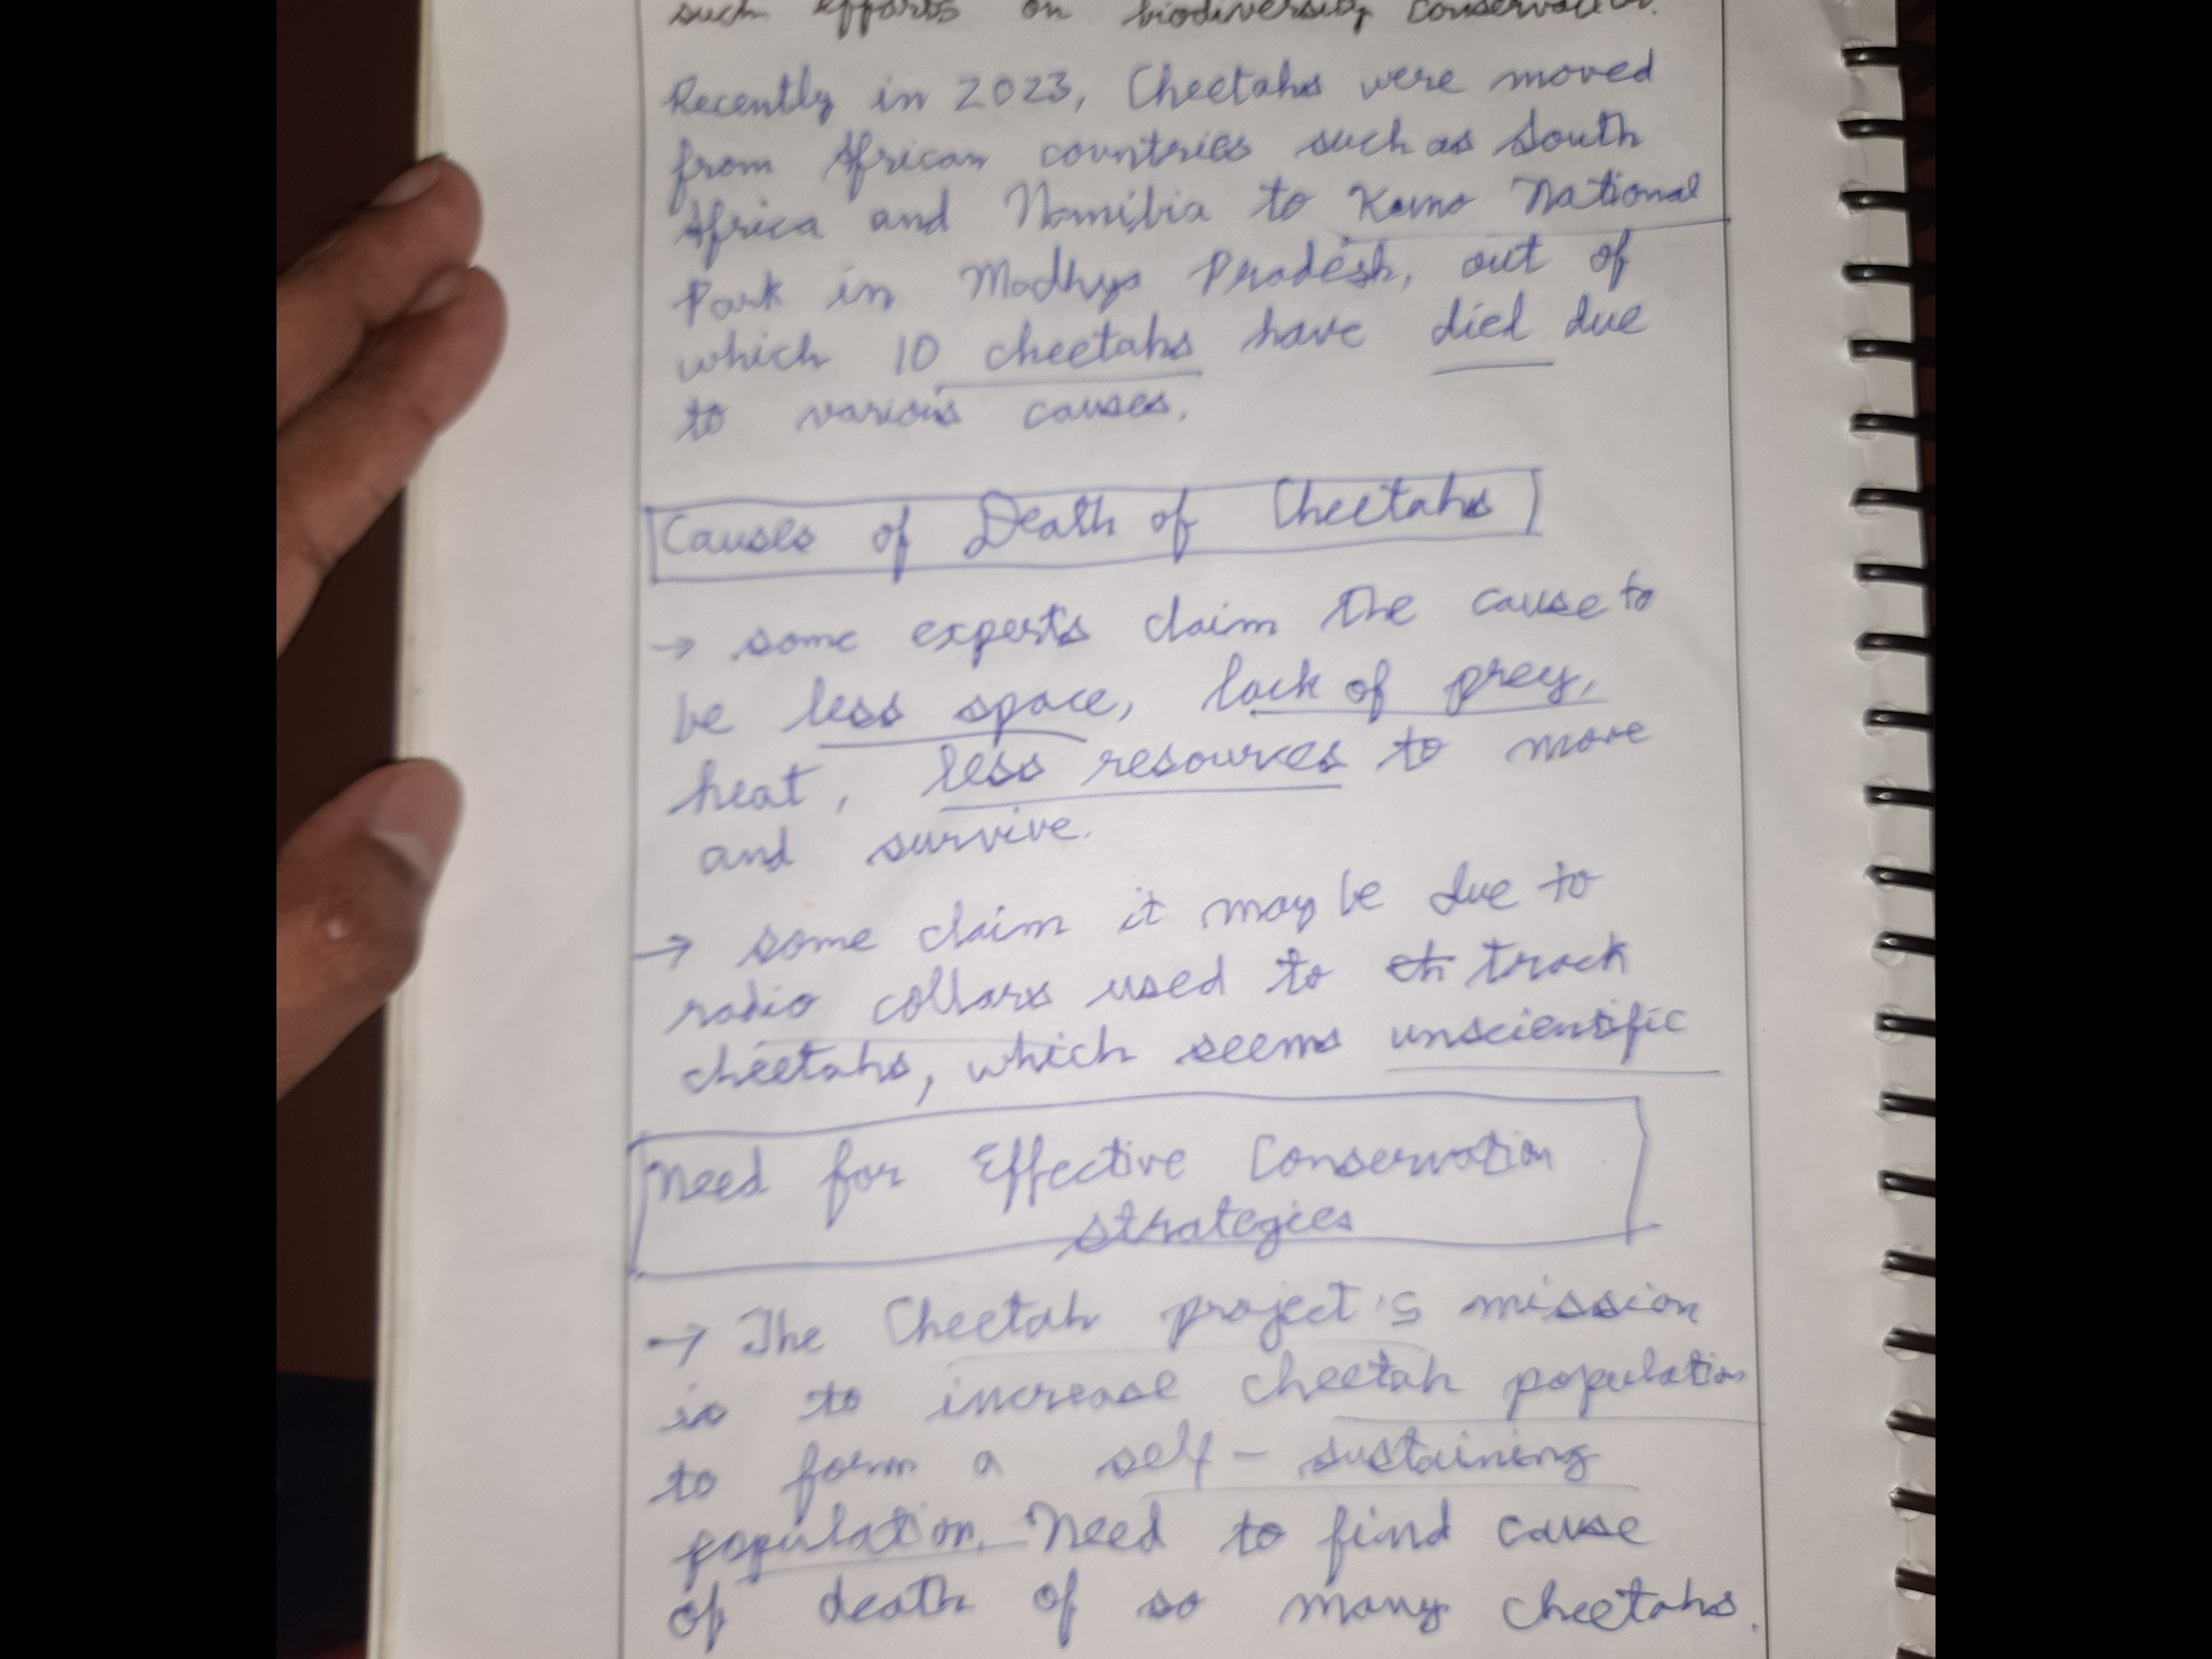 such efforts on biodiversity conservation.
Recently in 2023, Cheetahs were moved
from African countries such as South
Africa and Namibia to Kuno National
Park in Madhya Pradesh, out of
which 10 cheetahs have died due
to various causes.
Causes of Death of Cheetahs
→ some experts claim the cause to
be less space, lack of prey,
heat, less resources to move
and survive.
→ some claim it may be due to
radio collars used to track
cheetahs, which seems unscientific
Need for Effective Conservation
strategies
→ The Cheetah project's mission
is to increase cheetah population
to form a self-sustaining
population. Need to find cause
of death of so many cheetahs.